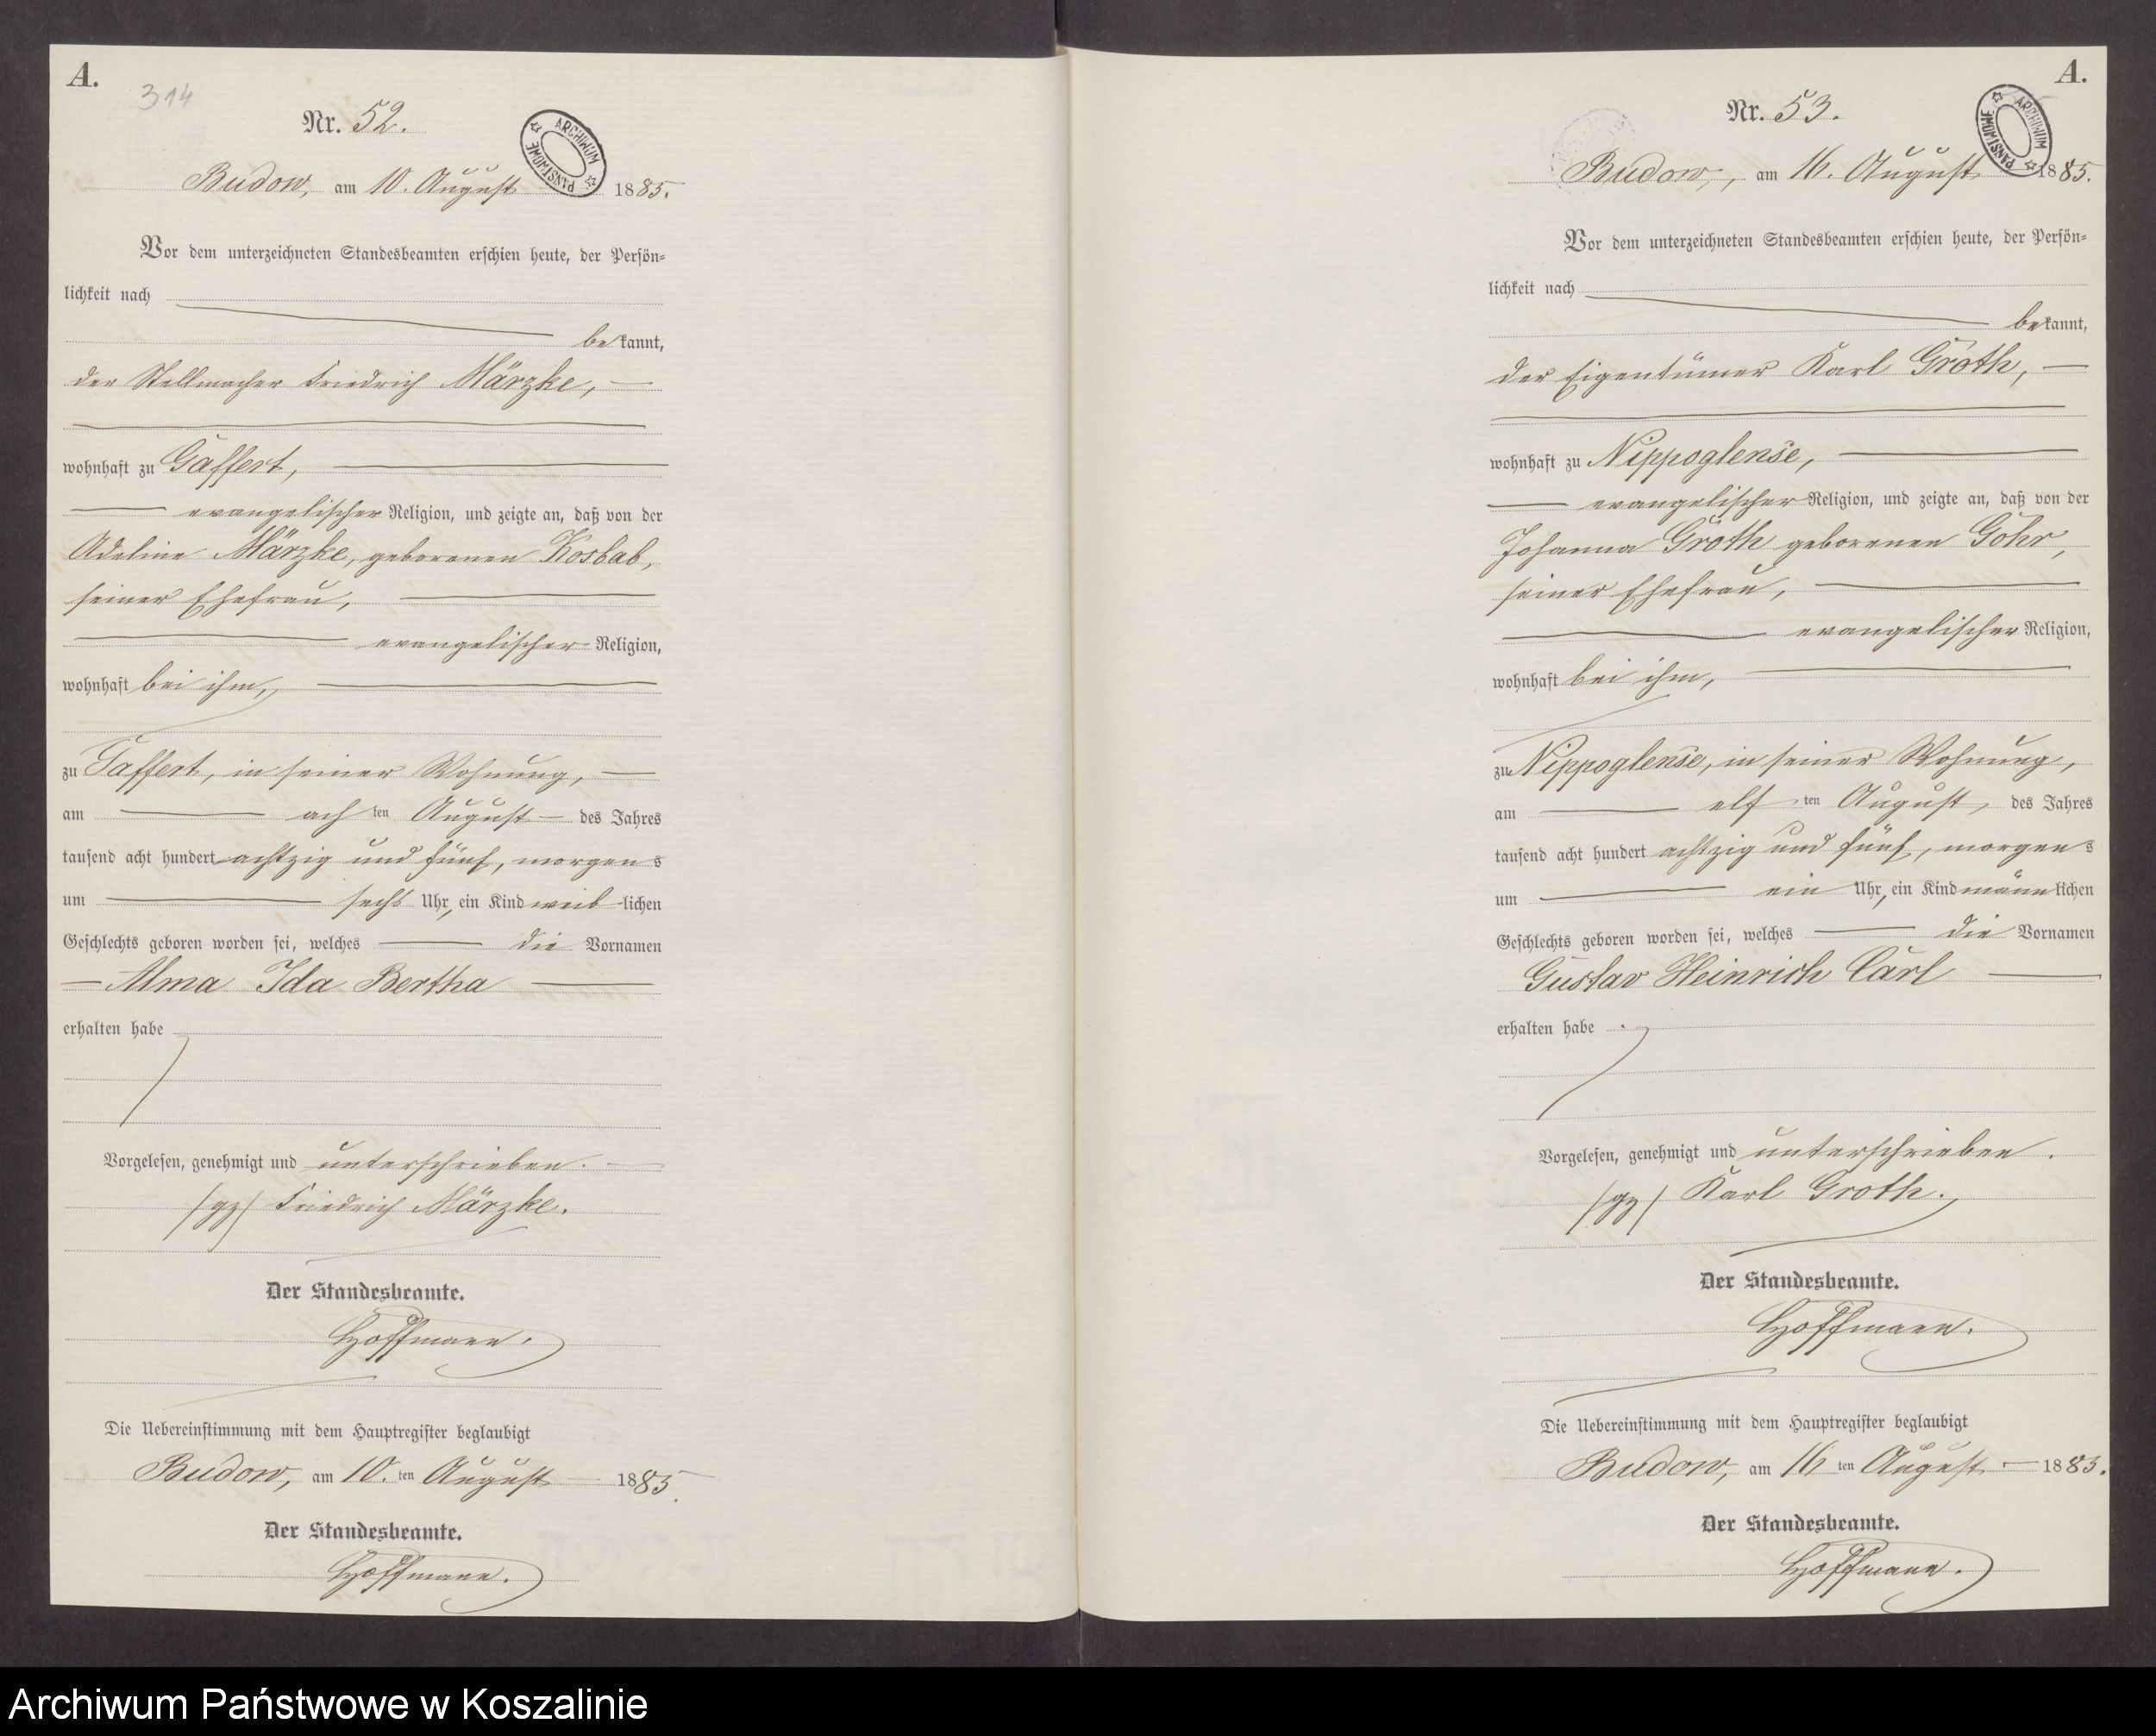 A.
314
Nr. 52.
ARCHIWUM PAŃSTWOWE
Budow, am 10. August 1885.
Vor dem unterzeichneten Standesbeamten erschien heute, der Persön=
lichkeit nach
bekannt,
der Stellmacher Friedrich Märzke,
wohnhaft zu Gaffert,
evangelischer Religion, und zeigte an, daß von der
Adeline Märzke, geborenen Kosbab,
seiner Ehefrau,
evangelischer Religion,
wohnhaft bei ihm,
zu Gaffert, in seiner Wohnung,
am achten August des Jahres
tausend acht hundert achtzig und fünf, morgens
um sechs Uhr, ein Kind weiblichen
Geschlechts geboren worden sei, welches die Vornamen
Alma Ida Bertha
erhalten habe
Vorgelesen, genehmigt und unterschrieben.
/gz/ Friedrich Märzke.
Der Standesbeamte.
Hoffmann.
Die Uebereinstimmung mit dem Hauptregister beglaubigt
Budow, am 10.ten August 1885.
Der Standesbeamte.
Hoffmann.
A.
Nr. 53.
ARCHIWUM PAŃSTWOWE
Budow, am 16. August 1885.
Vor dem unterzeichneten Standesbeamten erschien heute, der Persön=
lichkeit nach
bekannt,
der Eigentümer Karl Groth,
wohnhaft zu Nippoglense,
evangelischer Religion, und zeigte an, daß von der
Johanna Groth geborenen Gohr,
seiner Ehefrau,
evangelischer Religion,
wohnhaft bei ihm,
zu Nippoglense, in seiner Wohnung,
am elften August, des Jahres
tausend acht hundert achtzig und fünf, morgens
um ein Uhr, ein Kind männlichen
Geschlechts geboren worden sei, welches die Vornamen
Gustav Heinrich Carl
erhalten habe
Vorgelesen, genehmigt und unterschrieben.
/gz/ Karl Groth.
Der Standesbeamte.
Hoffmann.
Die Uebereinstimmung mit dem Hauptregister beglaubigt
Budow, am 16 ten August 1885.
Der Standesbeamte.
Hoffmann.
Archiwum Państwowe w Koszalinie